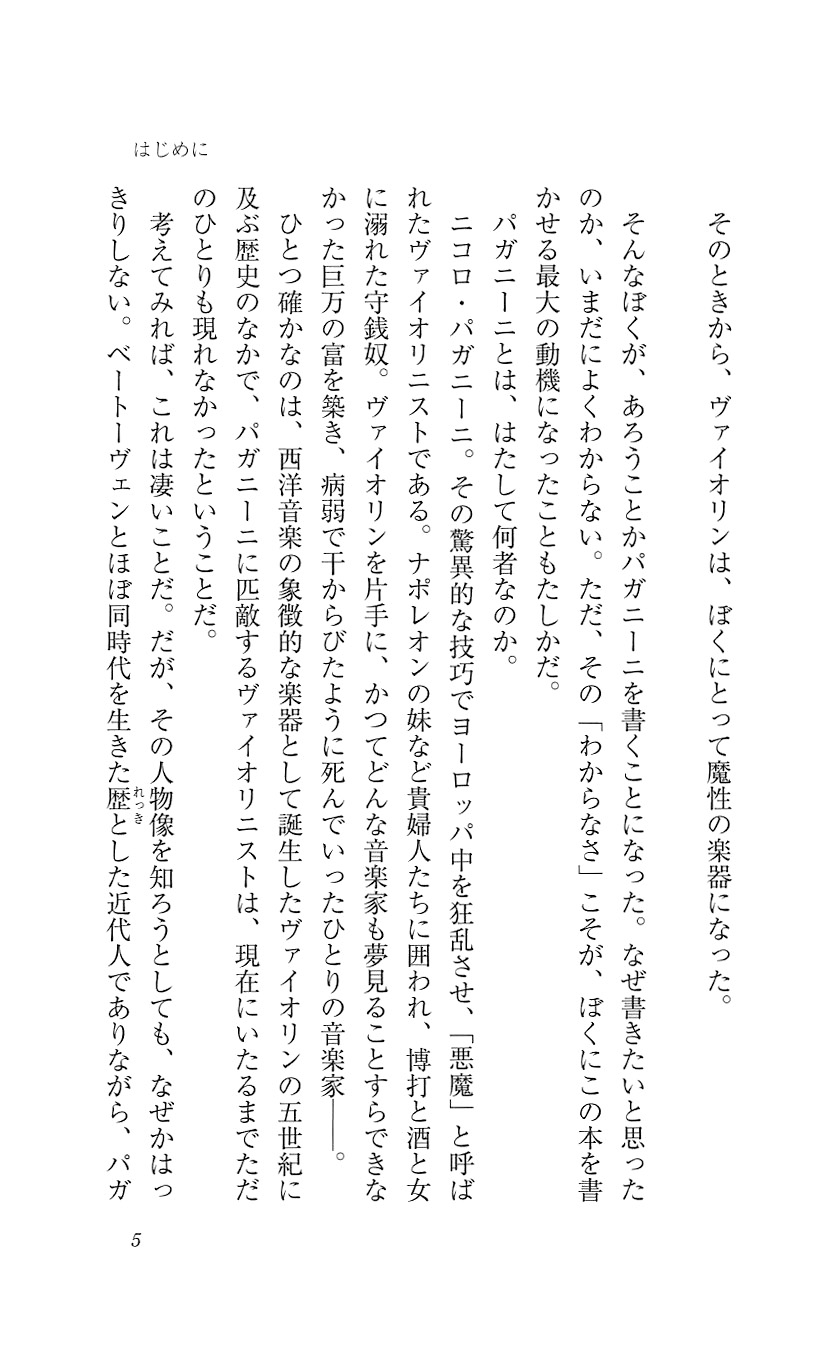 はじめに
そのときから、ヴァイオリンは、ぼくにとって魔性の楽器になった。
そんなぼくが、あろうことかパガニーニを書くことになった。なぜ書きたいと思った
のか、いまだによくわからない。ただ、その「わからなさ」こそが、ぼくにこの本を書
かせる最大の動機になったこともたしかだ。
パガニーニとは、はたして何者なのか。
ニコロ・パガニーニ。その驚異的な技巧でヨーロッパ中を狂乱させ、「悪魔」と呼ば
れたヴァイオリニストである。ナポレオンの妹など貴婦人たちに囲われ、博打と酒と女
に溺れた守銭奴。ヴァイオリンを片手に、かつてどんな音楽家も夢見ることすらできな
かった巨万の富を築き、病弱で干からびたように死んでいったひとりの音楽家――。
ひとつ確かなのは、西洋音楽の象徴的な楽器として誕生したヴァイオリンの五世紀に
及ぶ歴史のなかで、パガニーニに匹敵するヴァイオリニストは、現在にいたるまでただ
のひとりも現れなかったということだ。
考えてみれば、これは凄いことだ。だが、その人物像を知ろうとしても、なぜかはっ
きりしない。ベートーヴェンとほぼ同時代を生きた歴れっきとした近代人でありながら、パガ
5